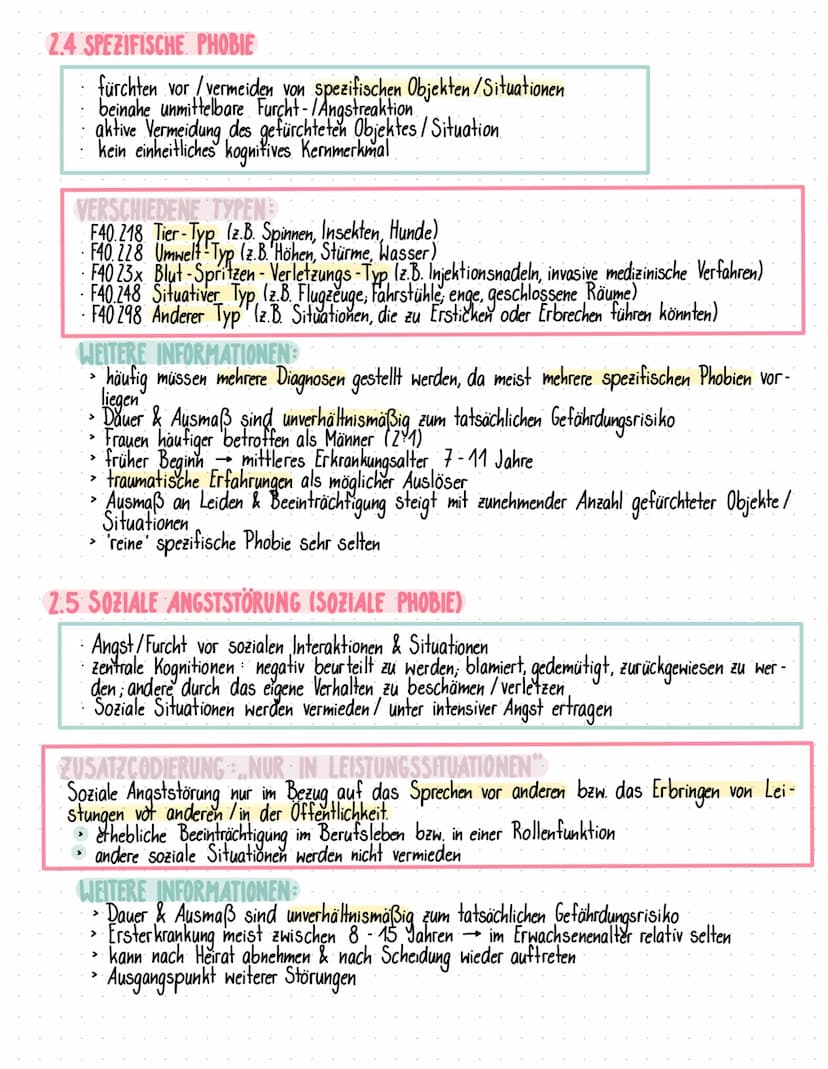 2.4 SPEZIFISCHE PHOBIE
· fürchten vor / vermeiden von spezifischen Objekten / Situationen
· beinahe unmittelbare Furcht- / Angstreaktion
· aktive Vermeidung des gefürchteten Objektes / Situation
· kein einheitliches kognitives Kernmerkmal
VERSCHIEDENE TYPEN:
F40.218 Tier-Typ (z.B. Spinnen, Insekten, Hunde)
· F40.228 Umwelt-Typ (z.B. Höhen, Stürme, Wasser)
· F40 23x Blut-Spritzen-Verletzungs-Typ (z.B. Injektionsnadeln, invasive medizinische Verfahren)
· F40.248 Situativer Typ (z.B. Flugzeuge, Fahrstühle, enge, geschlossene Räume)
· F40 298 Anderer Typ (z.B. Situationen, die zu Ersticken oder Erbrechen führen könnten)
WEITERE INFORMATIONEN:
> häufig müssen mehrere Diagnosen gestellt werden, da meist mehrere spezifischen Phobien vor-
liegen
> Dauer & Ausmaß sind unverhältnismäßig zum tatsächlichen Gefährdungsrisiko
> Frauen häufiger betroffen als Männer (2:1)
> früher Beginn → mittleres Erkrankungsalter 7-11 Jahre
> traumatische Erfahrungen als möglicher Auslöser
> Ausmaß an Leiden & Beeinträchtigung steigt mit zunehmender Anzahl gefürchteter Objekte /
Situationen
> 'reine' spezifische Phobie sehr selten
2.5 SOZIALE ANGSTSTÖRUNG (SOZIALE PHOBIE)
· Angst / Furcht vor sozialen Interaktionen & Situationen
· zentrale Kognitionen : negativ beurteilt zu werden; blamiert, gedemütigt, zurückgewiesen zu wer-
den; andere durch das eigene Verhalten zu beschämen / verletzen
· Soziale Situationen werden vermieden / unter intensiver Angst ertragen
ZUSATZCODIERUNG: „NUR IN LEISTUNGSSITUATIONEN"
Soziale Angststörung nur im Bezug auf das Sprechen vor anderen bzw. das Erbringen von Lei-
stungen vor anderen / in der Öffentlichkeit.
> erhebliche Beeinträchtigung im Berufsleben bzw. in einer Rollenfunktion
> andere soziale Situationen werden nicht vermieden
WEITERE INFORMATIONEN:
> Dauer & Ausmaß sind unverhältnismäßig zum tatsächlichen Gefährdungsrisiko
> Ersterkrankung meist zwischen 8 - 15 Jahren → im Erwachsenenalter relativ selten
> kann nach Heirat abnehmen & nach Scheidung wieder auftreten
> Ausgangspunkt weiterer Störungen